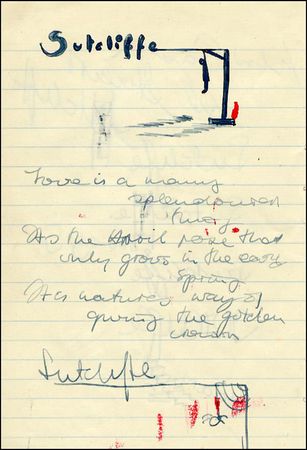 Sutcliffe
Love is a many
splendoured
thing
Its the April rose that
only grows in the early
Spring
Its natures way of
giving the golden
crown
Sutcliffe